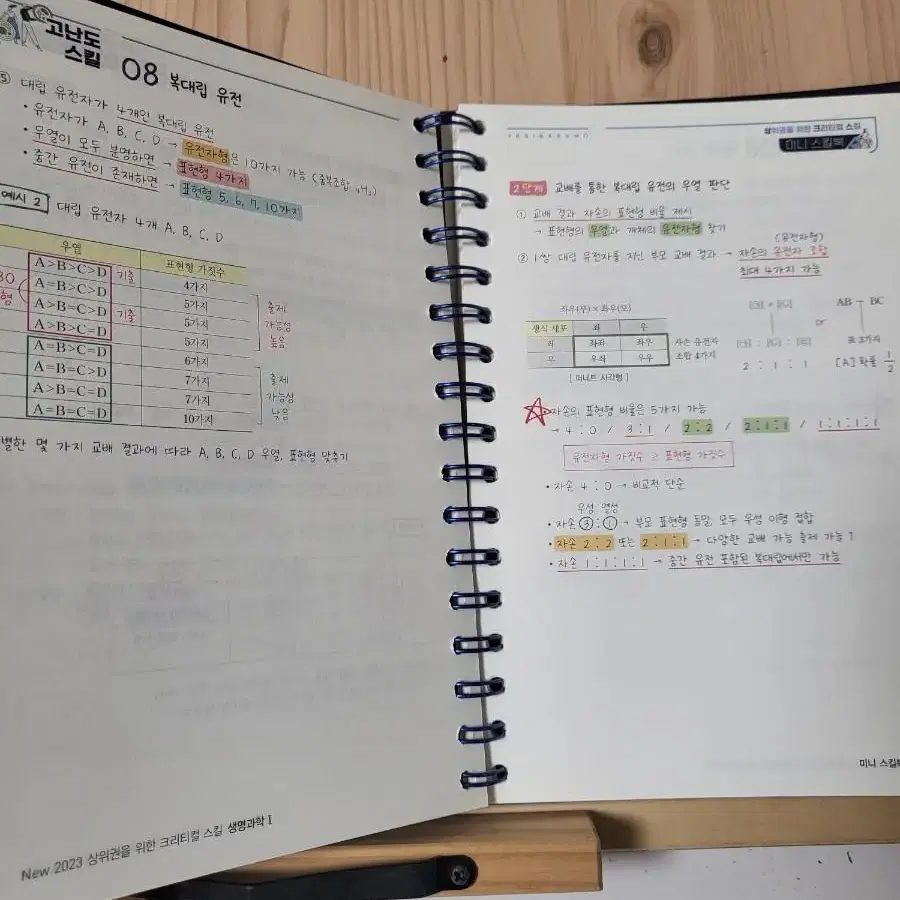 고난도
스킬 08 복대립 유전
⑤ 대립 유전자가 4개인 복대립 유전
• 유전자가 A, B, C, D → 유전자형은 10가지 가능 (중복조합 ₄H₂)
• 우열이 모두 분명하면 → 표현형 4가지
• 중간 유전이 존재하면 → 표현형 5, 6, 7, 10가지
예시 2 대립 유전자 4개 A, B, C, D
우열 표현형 가짓수
A>B>C>D 기출 4가지
A=B>C>D 5가지
A>B=C>D 기출 5가지
A>B>C=D 5가지
A=B>C=D 6가지
A=B=C>D 7가지
A>B=C=D 7가지
A=B=C=D 10가지
출제
가능성
높음
출제
가능성
낮음
별한 몇 가지 교배 결과에 따라 A, B, C, D 우열, 표현형 맞추기
New 2023 상위권을 위한 크리티컬 스킬 생명과학 I
상위권을 위한 크리티컬 스킬
미니 스킬북
2단계 교배를 통한 복대립 유전의 우열 판단
① 교배 결과 자손의 표현형 비율 제시
→ 표현형의 우열과 개체의 유전자형 찾기
(유전자형)
② 1쌍 대립 유전자를 지닌 부모 교배 결과 → 자손의 유전자 조합
최대 4가지 가능
좌우(부) × 좌우(모)
생식 세포 좌 우
좌 좌좌 좌우
우 우좌 우우
자손 유전자
조합 4가지
[ 퍼네트 사각형 ]
or
AB ─ BC
2 : 1 : 1
[A] 확률 1/2
자손의 표현형 비율은 5가지 가능
→ 4 : 0 / 3 : 1 / 2 : 2 / 2 : 1 : 1 / 1 : 1 : 1 : 1
유전자형 가짓수 ≥ 표현형 가짓수
• 자손 4 : 0 → 비교적 단순
우성 열성
• 자손 ③ : ① → 부모 표현형 동일, 모두 우성 이형 접합
• 자손 2 : 2 또는 2 : 1 : 1 → 다양한 교배 가능 출제 가능 ↑
• 자손 1 : 1 : 1 : 1 → 중간 유전 포함된 복대립에서만 가능
미니 스킬북